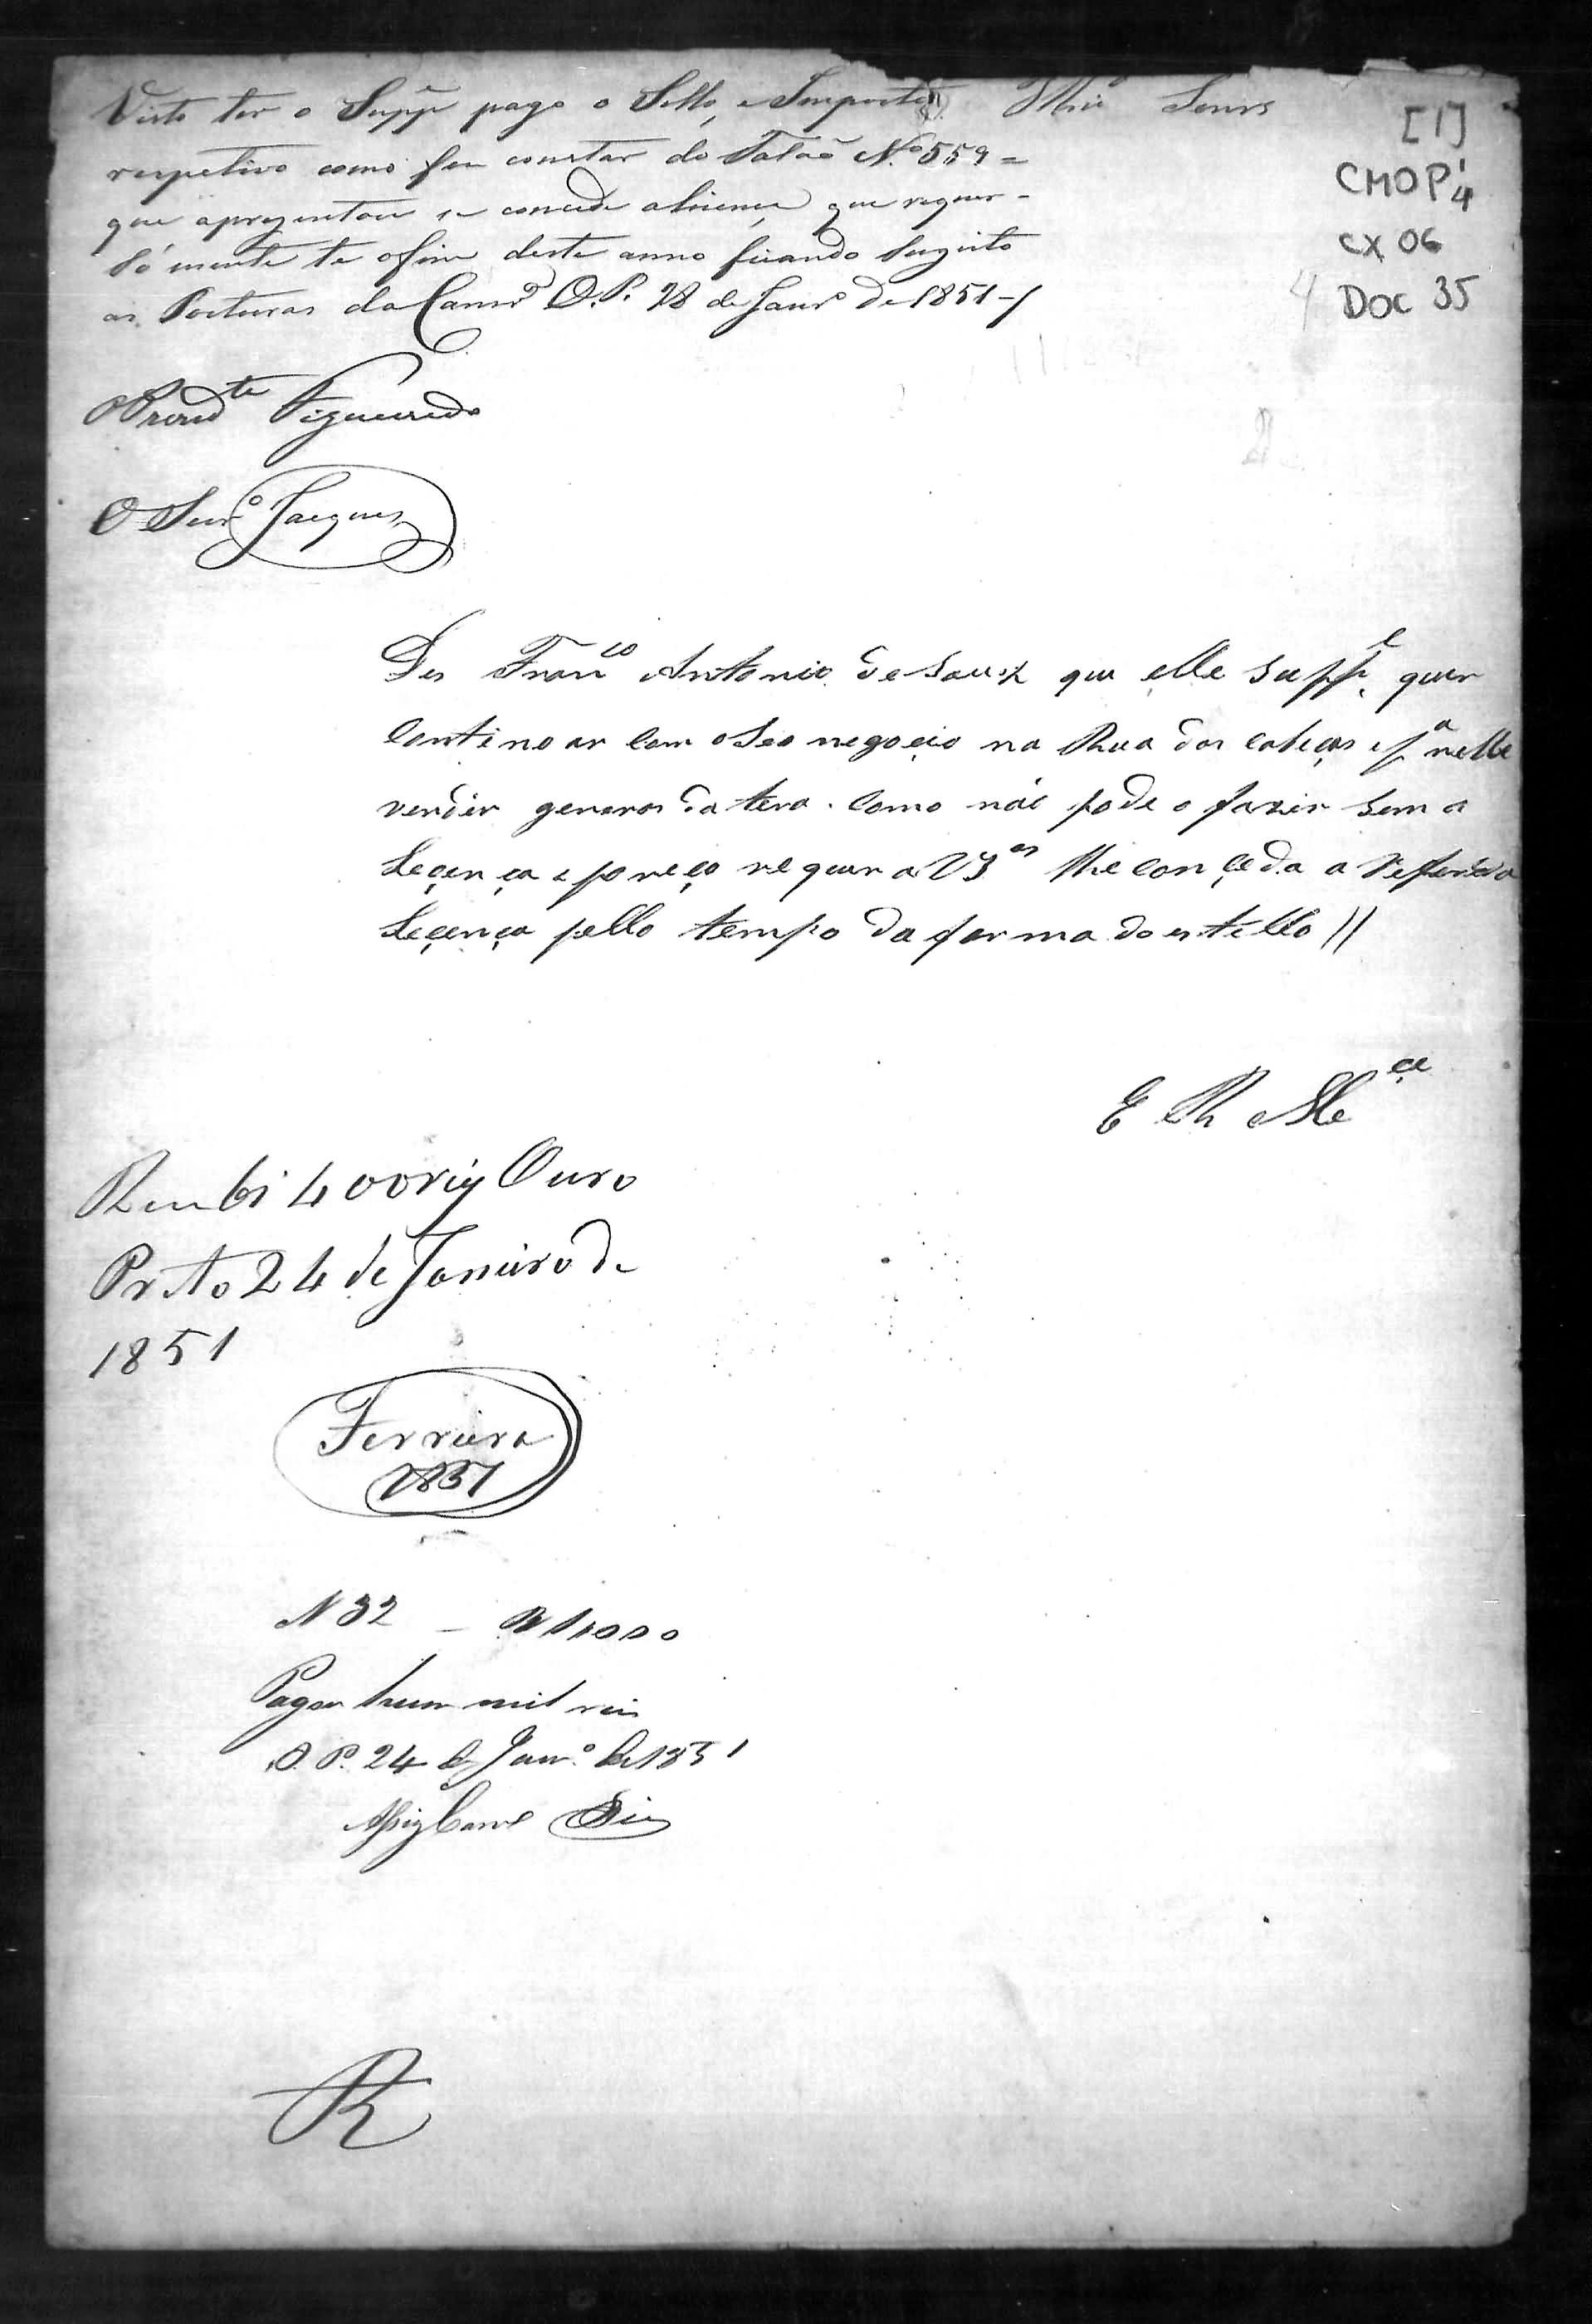 Visto ter o Supp.e pago o Sello, e Imposto
respetivo como fes constar do Talaõ N.o 559 =
que aprezentou se concede a licença que requer -
Só mente te o fim deste anno ficando sugeito
as Posturas da Camr.a O. P. 28 de Janr.o de 1851 -/
Illm.os Senrs
[1]
CMOP 1/4
CX 06
DOC 35
O Prezid.te Figueiredo
O Secr.o Jacques
Diz Fran.co Antonio de Souza que elle Supp.e quer
Continoar Com o Seo negocio na Rua dos Cabeças e p.a nelle
vender generos da tera. Como não pode o fazer sem a
Leçença e por eço requer a VS.as lhe Conçeda a Referida
Leçença pello tempo da forma do estillo //
E R M.ce
Recebi 400 reis Ouro
Preto 24 de Janeiro de
1851
Ferreira
1851
N 32 - R 1,000
Pagou hum mil reis
O. P. 24 de Janr.o de 1851
Dias
R